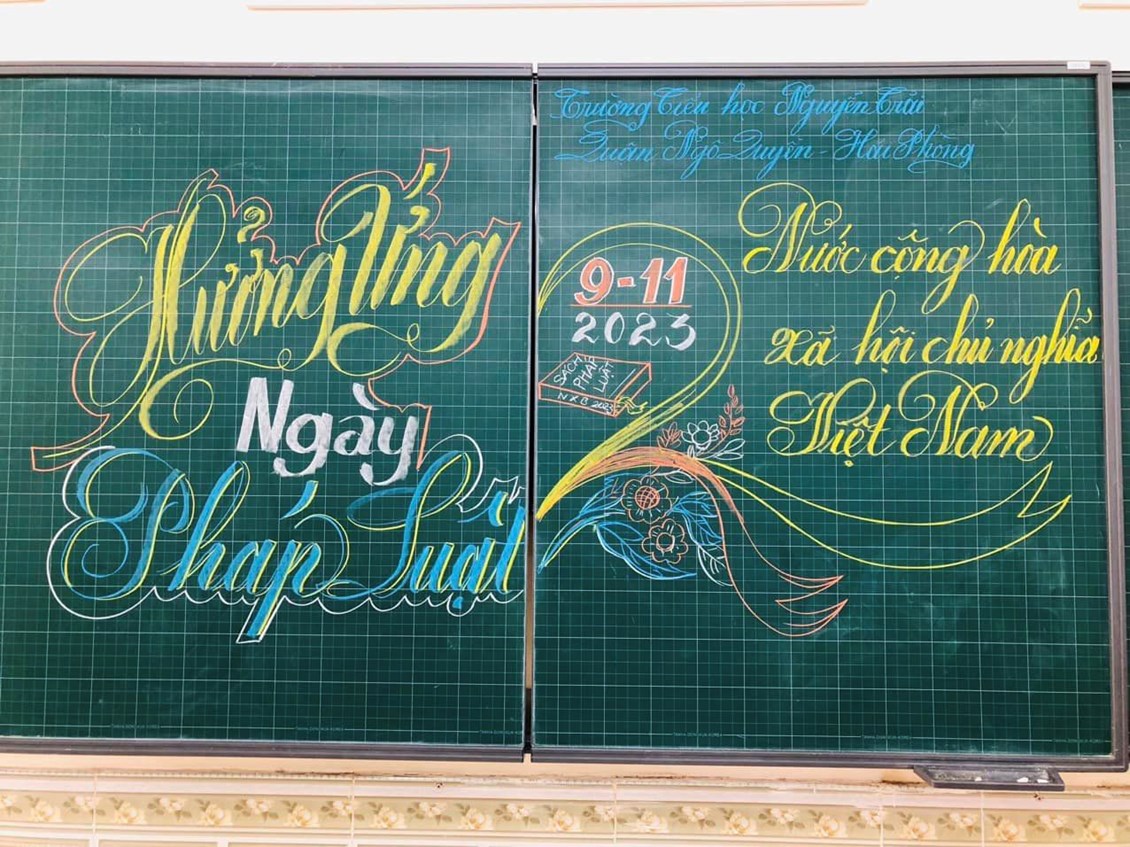 Hưởng Ứng
Ngày
Pháp Luật
Trường Tiểu học Nguyễn Trãi
Quận Ngô Quyền - Hải Phòng
9-11
2023
SÁCH
PHÁP
LUẬT
NXB 2023
Nước công hòa
xã hội chủ nghĩa
Việt Nam